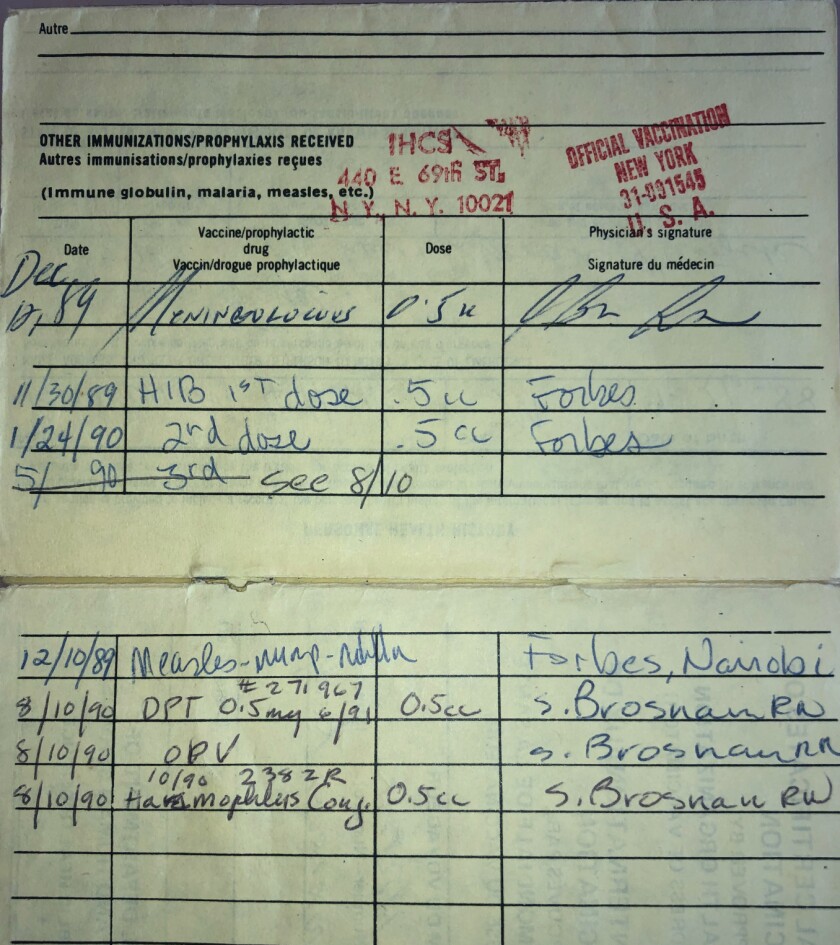 Autre
OTHER IMMUNIZATIONS/PROPHYLAXIS RECEIVED
Autres immunisations/prophylaxies reçues
(Immune globulin, malaria, measles, etc.)
IHCS
440 E 69th ST.
N.Y., N.Y. 10021
OFFICIAL VACCINATION
NEW YORK
31-031545
U.S.A.
Date
Vaccine/prophylactic
drug
Vaccin/drogue prophylactique
Dose
Physician's signature
Signature du médecin
Dec
12, 89 Meningococcus 0.5
11/30/89 HIB 1st dose .5 cc Forbes
1/24/90 2nd dose .5 cc Forbes
5/ 90 3rd see 8/10
12/10/89 Measles-mump- Forbes, Nairobi
# 271967
8/10/90 DPT 0.5 6/91 0.5cc S. Brosnan RN
8/10/90 OPV S. Brosnan RN
10/90 2382R
8/10/90 Haemophlus Conj. 0.5cc S. Brosnan RN